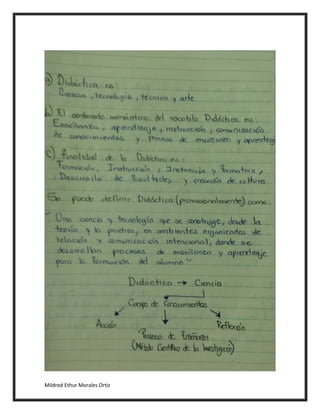 a) Didáctica es:
Ciencia, tecnología, técnica y arte
b) El contenido semántico del vocablo Didáctica es:
Enseñanza, aprendizaje, instrucción, comunicación
de conocimientos y proceso de enseñanza y aprendizaje
c) Finalidad de la Didáctica es:
Formación, Instrucción, Instrucción y Formativa,
Desarrollo de Facultades y creación de cultura
Se puede definir Didáctica (provisionalmente) como:
"Una ciencia y tecnología que se construye, desde la
teoría y la práctica, en ambientes organizados de
relación y comunicación intencional, donde se
desarrollan procesos de enseñanza y aprendizaje
para la formación del alumno"
Didáctica → Ciencia
Cuerpo de Conocimientos
Acción Reflexión
Proceso de Enseñanza
(Método Científico de la Investigación)
Mildred Ethur Morales Ortiz